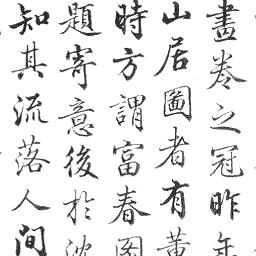 畫卷之冠昨年
山居圖者有黃
時方謂富春圖
題寄意後於沈
知其流落人間